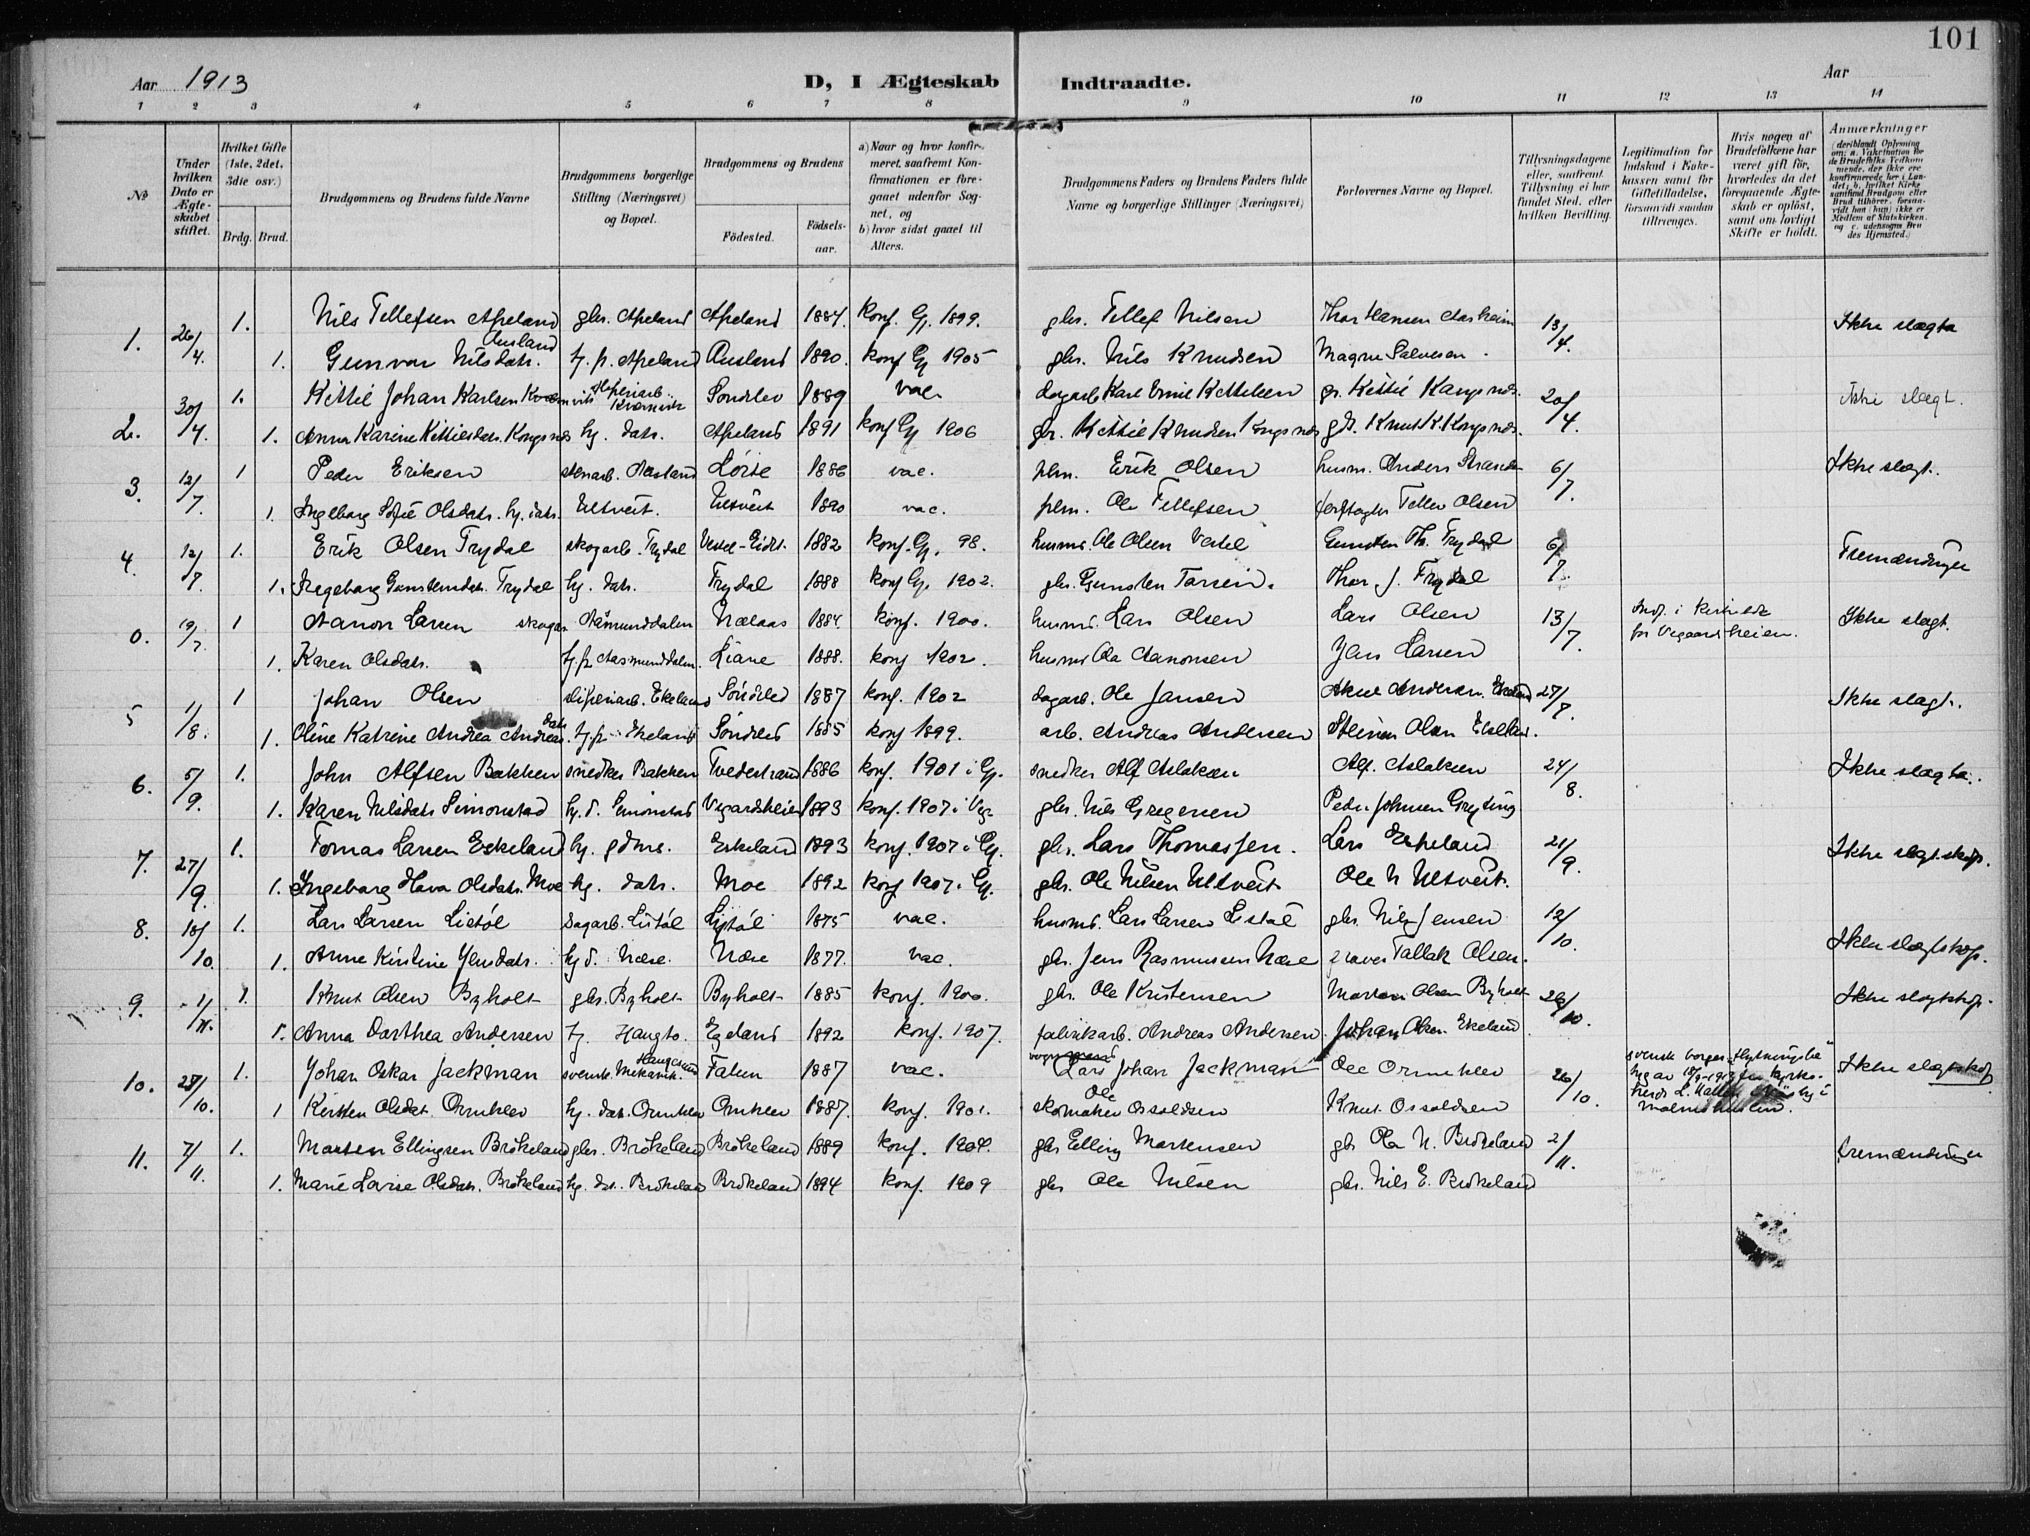 101
Aar 1913 D, I Ægteskab Indtraadte. Aar
1 2 3 4 5 6 7 8 9 10 11 12 13 14
№
Under hvilken Dato er Ægteskabet stiftet.
Hvilket Gifte (1ste, 2det, 3die osv.)
Brdg. Brud.
Brudgommens og Brudens fulde Navne
Brudgommens borgerlige Stilling (Næringsvei) og Bopæl.
Brudgommens og Brudens
Födested. Födselsaar.
a) Naar og hvor konfirmeret, saafremt Konfirmationen er foregaaet udenfor Sognet, og
b) hvor sidst gaaet til Alters.
Brudgommens Faders og Brudens Faders fulde Navne og borgerlige Stillinger (Næringsvei)
Forlovernes Navne og Bopæl.
Tillysningsdagene eller, saafremt Tillysning ei har fundet Sted, efter hvilken Bevilling.
Legitimation for Indskud i Enkekassen samt for Giftetilladelse, forsaavidt saadan tiltrænges.
Hvis nogen af Brudefolkene har været gift för, hvorledes da det foregaaende Ægteskab er oplöst, samt om lovligt Skifte er holdt.
Anmærkninger (deriblandt Oplysning om: a. Vakcination for de Brudefolks Vedkommende, der ikke ere konfirmerede her i Landet; b. hvilket Kirkesamfund Brudgom eller Brud tilhörer, forsaavidt han (hun) ikke er Medlem af Statskirken, og c. udensogns Böndes Hjemsted.)
1. 26/4. 1. Nils Tellefsen Apeland gbr. Apeland Apeland 1884. Konf. Gj. 1899. gbr. Tellef Nilsen Thor Hansen Aasheim 13/4. Ikke slægta
1. Gunvor Nilsdatr. Ausland tj. p. Apeland Ausland 1890. konf Gj 1905 gbr. Nils Knudsen Magne Salvesen.
2. 30/4. 1. Kittil Johan Karlsen Kvernvik Sliperiarb. Kvernvik Söndlev 1889 vac. dagarb Karl Emil Kittelsen gr. Kittil Kongsnes. 20/4. Ikke slægt.
1. Anna Karine Kittilsdatr. Kongsnes hj. datr. Apeland 1891 konf Gj 1906 gbr. Kittil Knudsen Kongsnes gbr. Knut K Kongsnes.
3. 12/7. 1 Peder Eriksen stenarb. Aasland 1886 vac. plm. Erik Olsen husm. Anders 6/7. Ikke slægt.
1. Ingeborg Sofie Olsdatr. hj. datr. Ultveit. Ultveit 1890 vac. plm. Ole Tellefsen Tellev Olsen
4. 12/7. 1. Erik Olsen Trydal skogarb. Trydal Vestel-Eidet. 1882 konf. Gj. 98. husmd. Ole Olsen Vestel Gunsten Th. Trydal 6/7. Fremændinger
1. Ingeborg Gunstensdatr. Trydal hj. datr. Trydal 1888 konf Gj. 1902. gbr. Gunsten Tarsein. Thor J. Trydal
0. 19/7. 1 Aanon Larsen skogar. Aamunddalen Nælaas 1884. konf. 1900. husmd. Lars Olsen Lars Olsen 13/7. Anf. i Kirkeliste for Vegaardsheien. Ikke slægt.
1. Karen Olsdatr. tj. p. Aasmunddalen. Liane 1888. konf 1902. husmd Ole Aanonsen Jens Larsen
5 1/8. 1 Johan Olsen sliperiarb. Ekeland Söndeled 1887 konf. 1902 dagarb. Ole Jansen Aknut Andersen. Ekeland 27/7. Ikke slægt.
1. Oline Katrine Andrea Andreasdatr. tj. p. Ekeland Söndeled 1885 konf 1899. arb. Andreas Andersen Steinar Olsen Ekeland.
6. 5/9. 1. John Alfsen Bakken snedker Bakken Tvedestrand 1886 konf. 1901 i Gj. snedker Alf Aslaksen Alf. Aslaksen 24/8. Ikke slægta.
1. Karen Nilsdatr. Simonstad hj. d. Simonstad Vegardsheien 1893 konf. 1907 i Veg. gbr. Nils Gregersen Peder Johnsen Gryting
7. 27/9. 1. Tomas Larsen Eskeland hj. gdms. Eskeland 1893 konf. 1907 i Gj. gbr. Lars Thomassen. Lars Eskeland 21/9. Ikke slegtskap.
1. Ingeborg Hava Olsdatr. Moe hj. datr. Moe 1892 konf 1907 i Gj. gbr. Ole Nilsen Ultveit Ole N Ultveit.
8. 18/10. 1. Lars Larsen Listöl dagarb. Listöl Listöl 1875 vac. husmd. Lars Larsen Listöl gbr. Nils Jensen 12/10. Ikke slægtskap.
1. Anne Kirstine Jensdatr. hj d. Næse. Næse 1877. vac. gbr. Jens Rasmussen Næse graver Tallak Olsen.
9. 1/11. 1. Knut Olsen Byholt gbr. Byholt Byholt 1885 konf. 1900. gbr. Ole Kristensen Morten Olsen Byholt 26/10. Ikke slægtskap.
1. Anna Dorthea Andersen tj. Haugto. Egeland 1892 konf. 1907. fabrikarb. Andreas Andersen. Johan Olsen. Ekeland.
10. 28/10. 1. Johan Oskar Jackman svensk. Mekanik. Haugesund Falun 1887 vac. Lars Johan Jackman Ole Ormhlev 26/10. svensk borger. flytningsbevis Ikke slægtskap
1 Kirsten Olsdat. Ormhlev hj. dat. Ormhlev Ormhlev 1887. konf. 1901. skomaker Ole Osvaldsen Knut Osvaldsen
11. 7/11. 1. Morten Ellingsen Brökeland gbr. Brökeland Brökeland 1889 konf. 1904. gbr Elling Mortensen gbr Ole N. Brökeland 2/11. Fremændinger
1. Marie Lovise Olsdatr. Brökeland hj. dat. Brökeland Brökeland 1894 konf. 1909 gbr Ole Nilsen gbr. Nils E. Brökeland